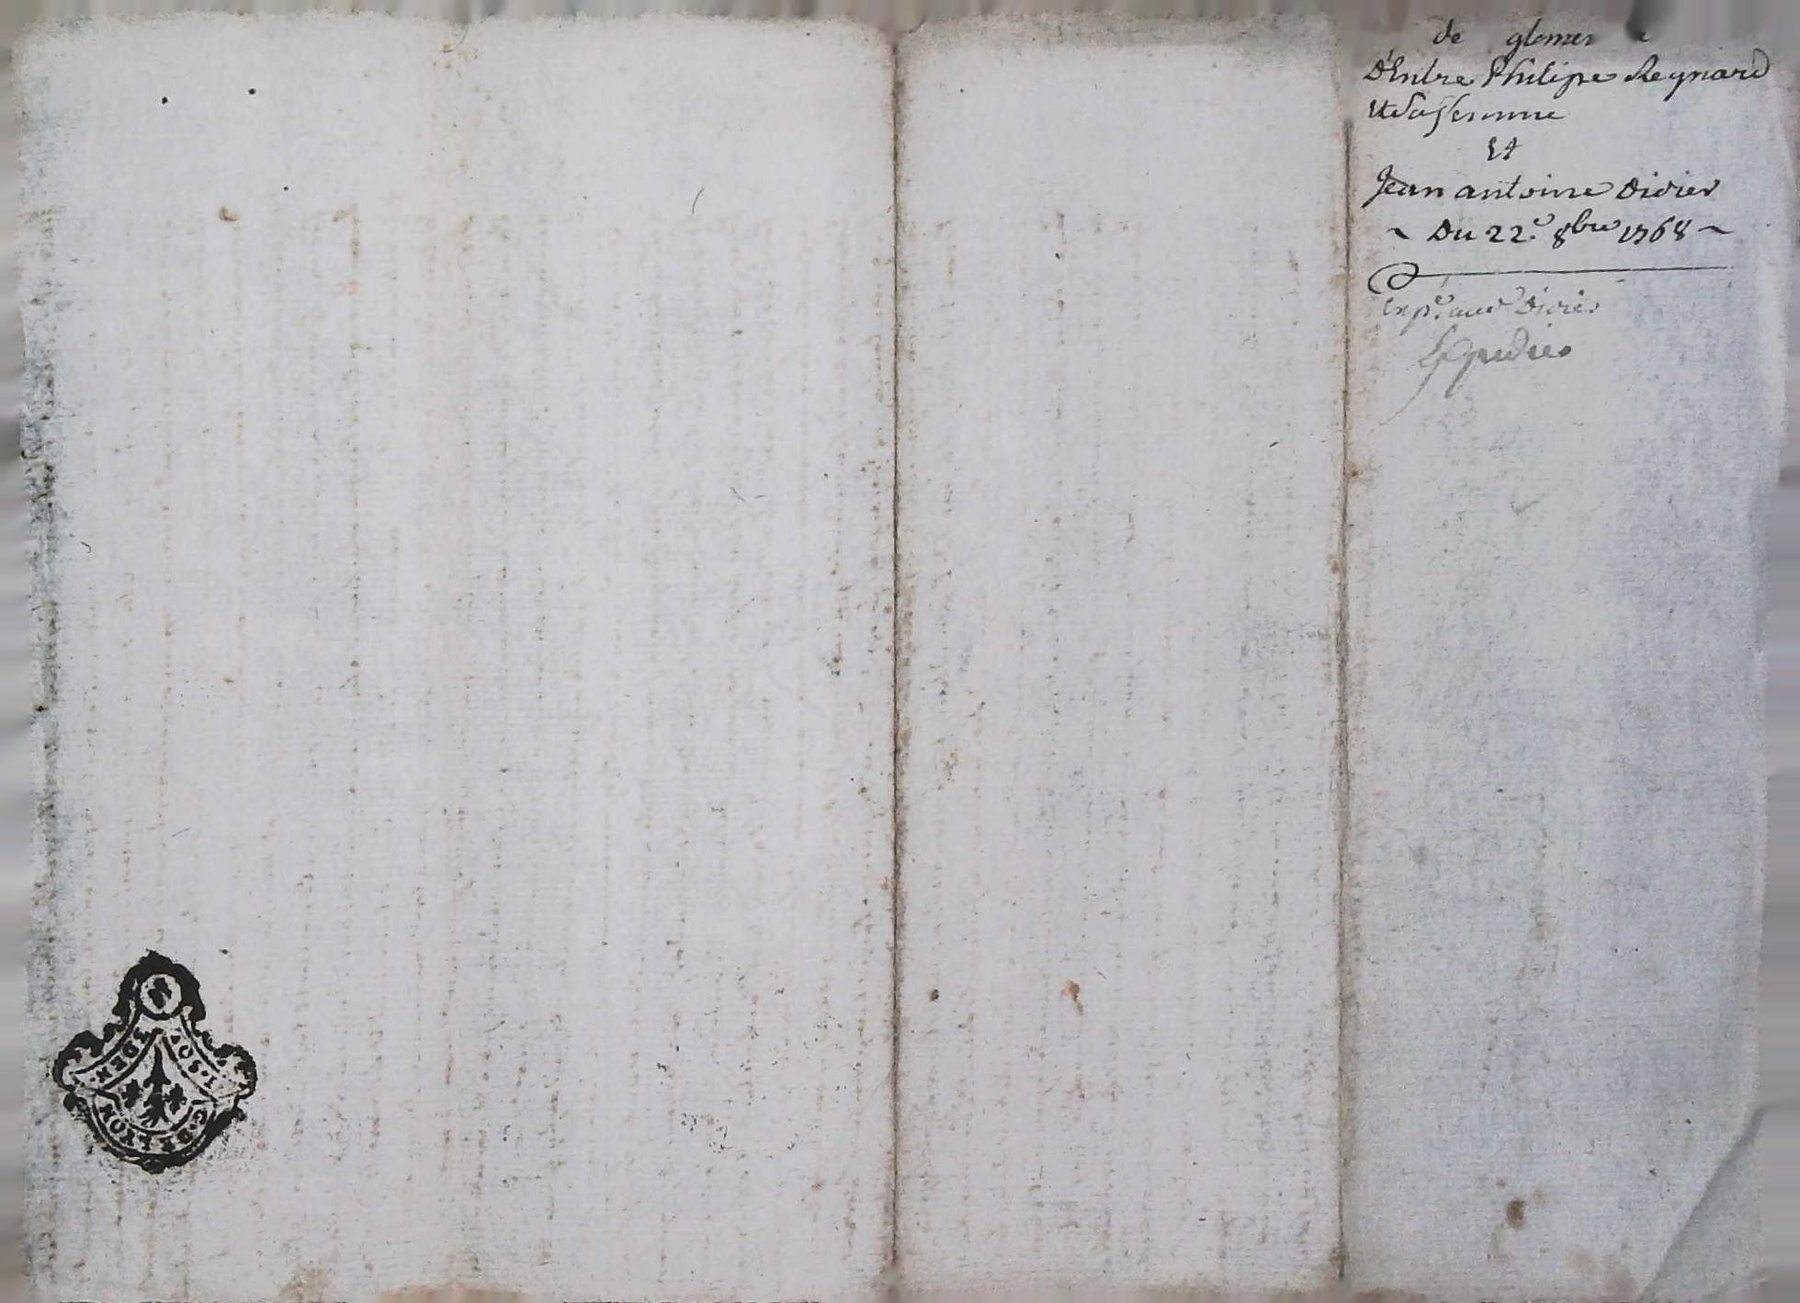 de
D'Entre Philipe Reynard
Et Sa femme
Et
Jean antoine Didier
~ Du 22.e 8bre 1768 ~
Exp.é aud Didier
Expedié
1. SOL
IDEN
G. DE LYON